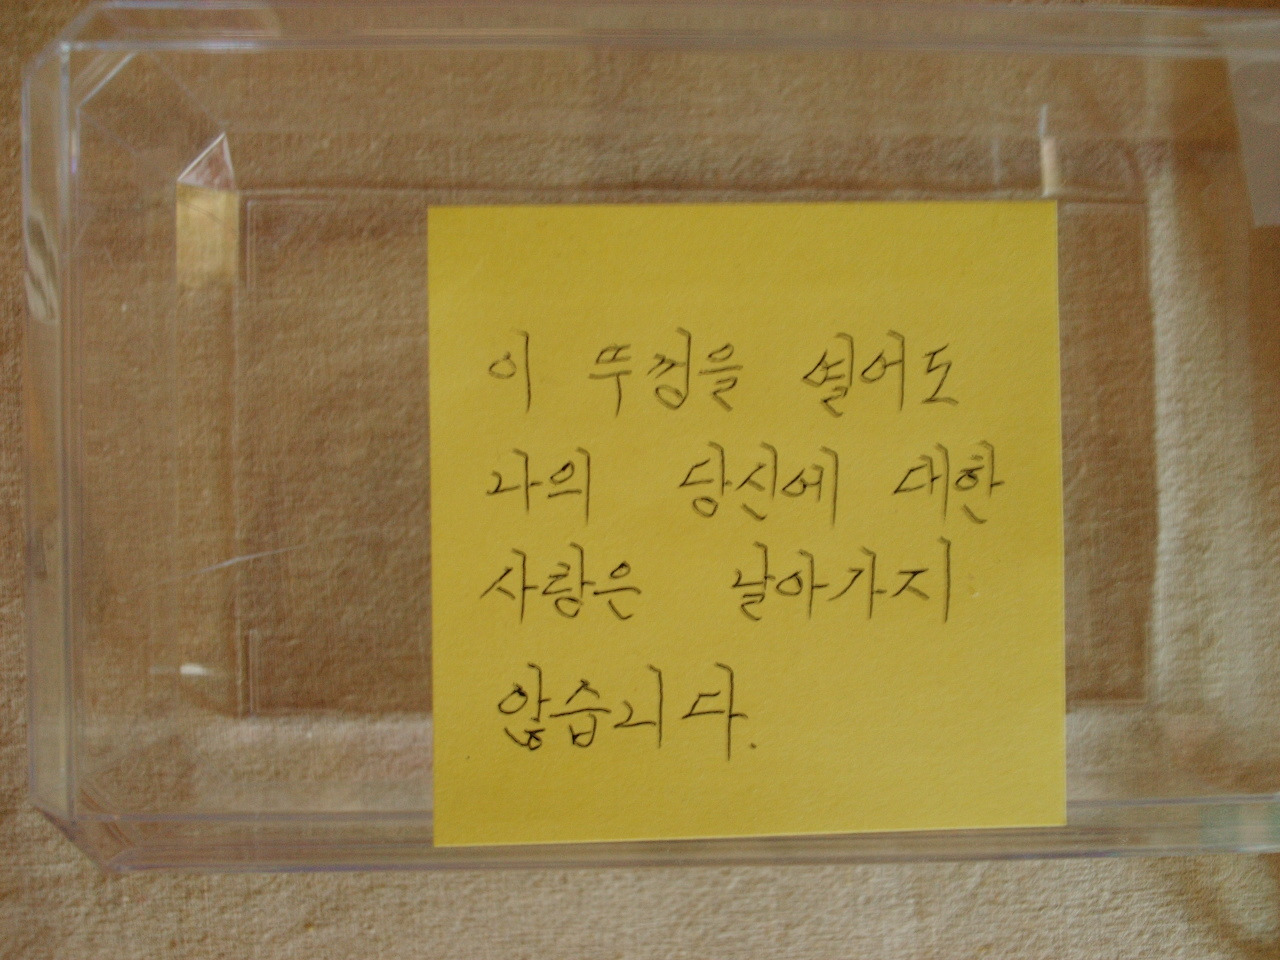 이 뚜껑을 열어도
나의 당신에 대한
사랑은 날아가지
않습니다.